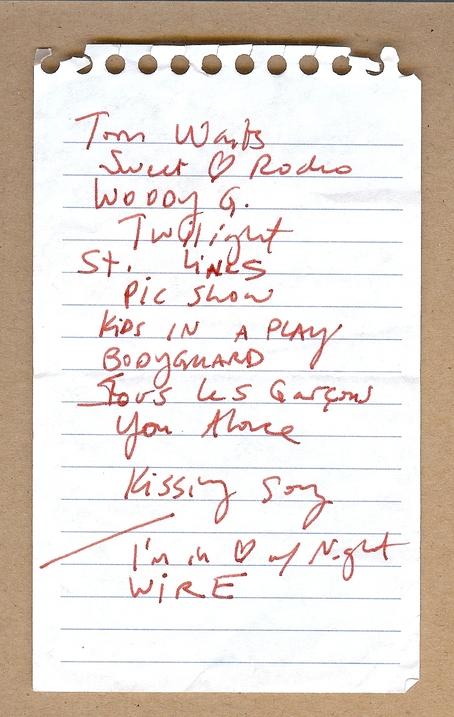 Tom Waits
Sweet ♡ Rodeo
WOODY G.
Twilight
St. LINES
PIC SHOW
KIDS IN A PLAY
BODYGUARD
Tous les Garçons
You Alone
Kissing Song
I'm in ♡ w/ Night
WIRE